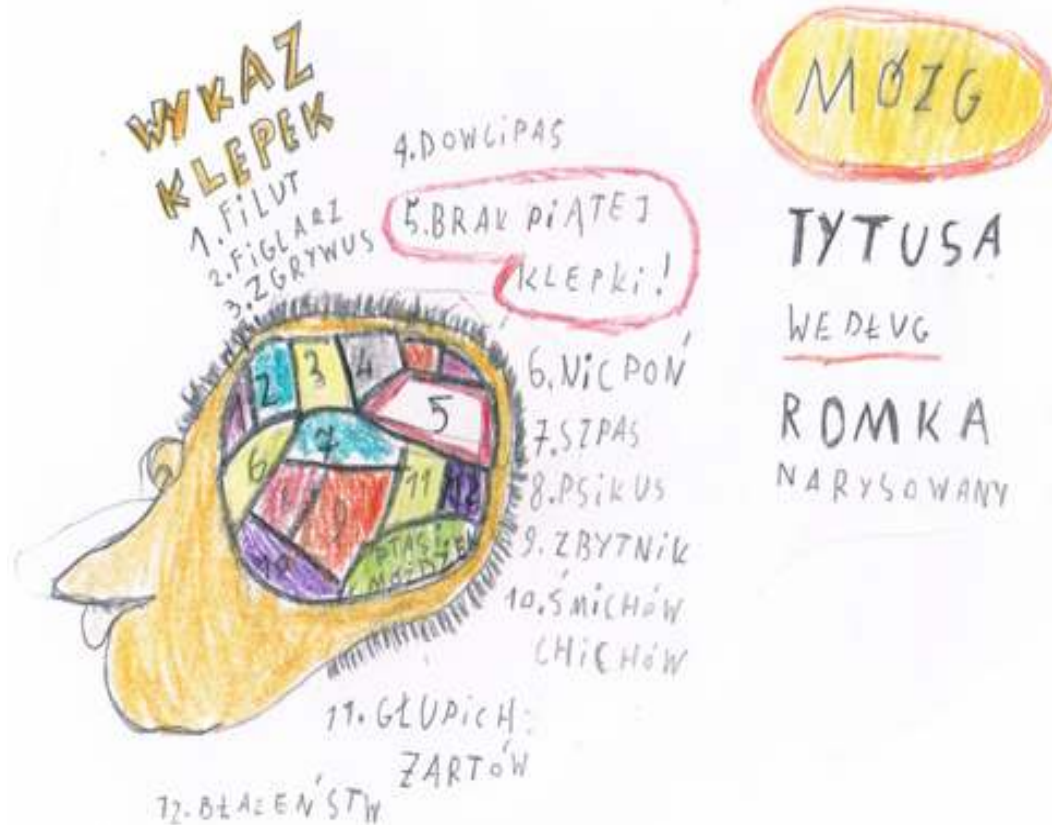 WYKAZ
KLEPEK
1. FiLUT
2. FiGLARZ
3. ZGRYWUS
4. DOWCiPAS
5. BRAK PiĄTEJ
KLEPKi!
6. NiCPOŃ
7. SZPAS
8. PSiKUS
9. ZBYTNiK
10. ŚMiCHÓW
CHiCHÓW
11. GŁUPiCH
ŻARTÓW
12. BŁAZEŃSTW
2
3
4
5
6
7
9
11
12
10
PTASi
MÓŻDŻEK
MÓZG
TYTUSA
WEDŁUG
ROMKA
NARYSOWANY